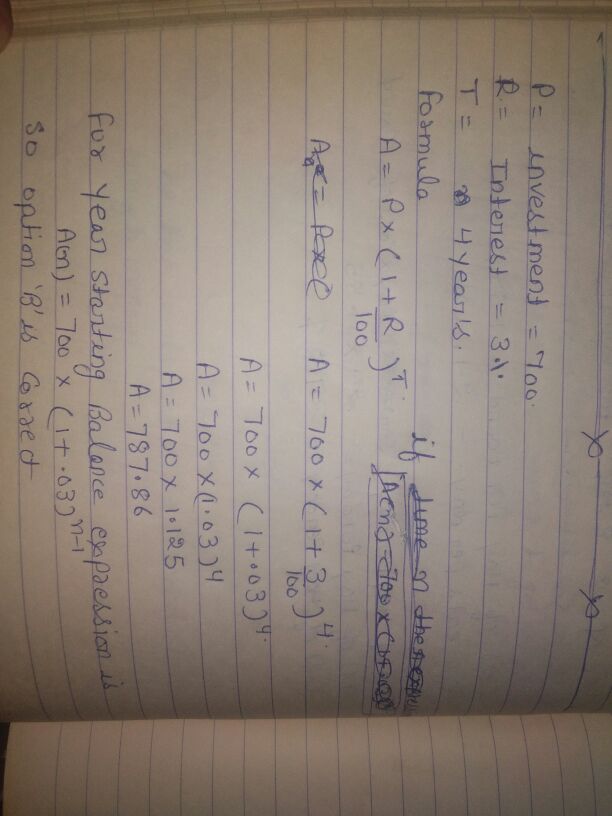 P = investment = 700.
R = Interest = 3%
T = 4 year's.
formula
A = P × (1 + R/100)^T
if time n the
A = 700 × (1 + 3/100)^4.
A = 700 × (1 + .03)^4.
A = 700 × (1.03)^4
A = 700 × 1.125
A = 787.86
for year starting Balance expression is
A(n) = 700 × (1 + .03)^n-1
so option 'B' is Correct